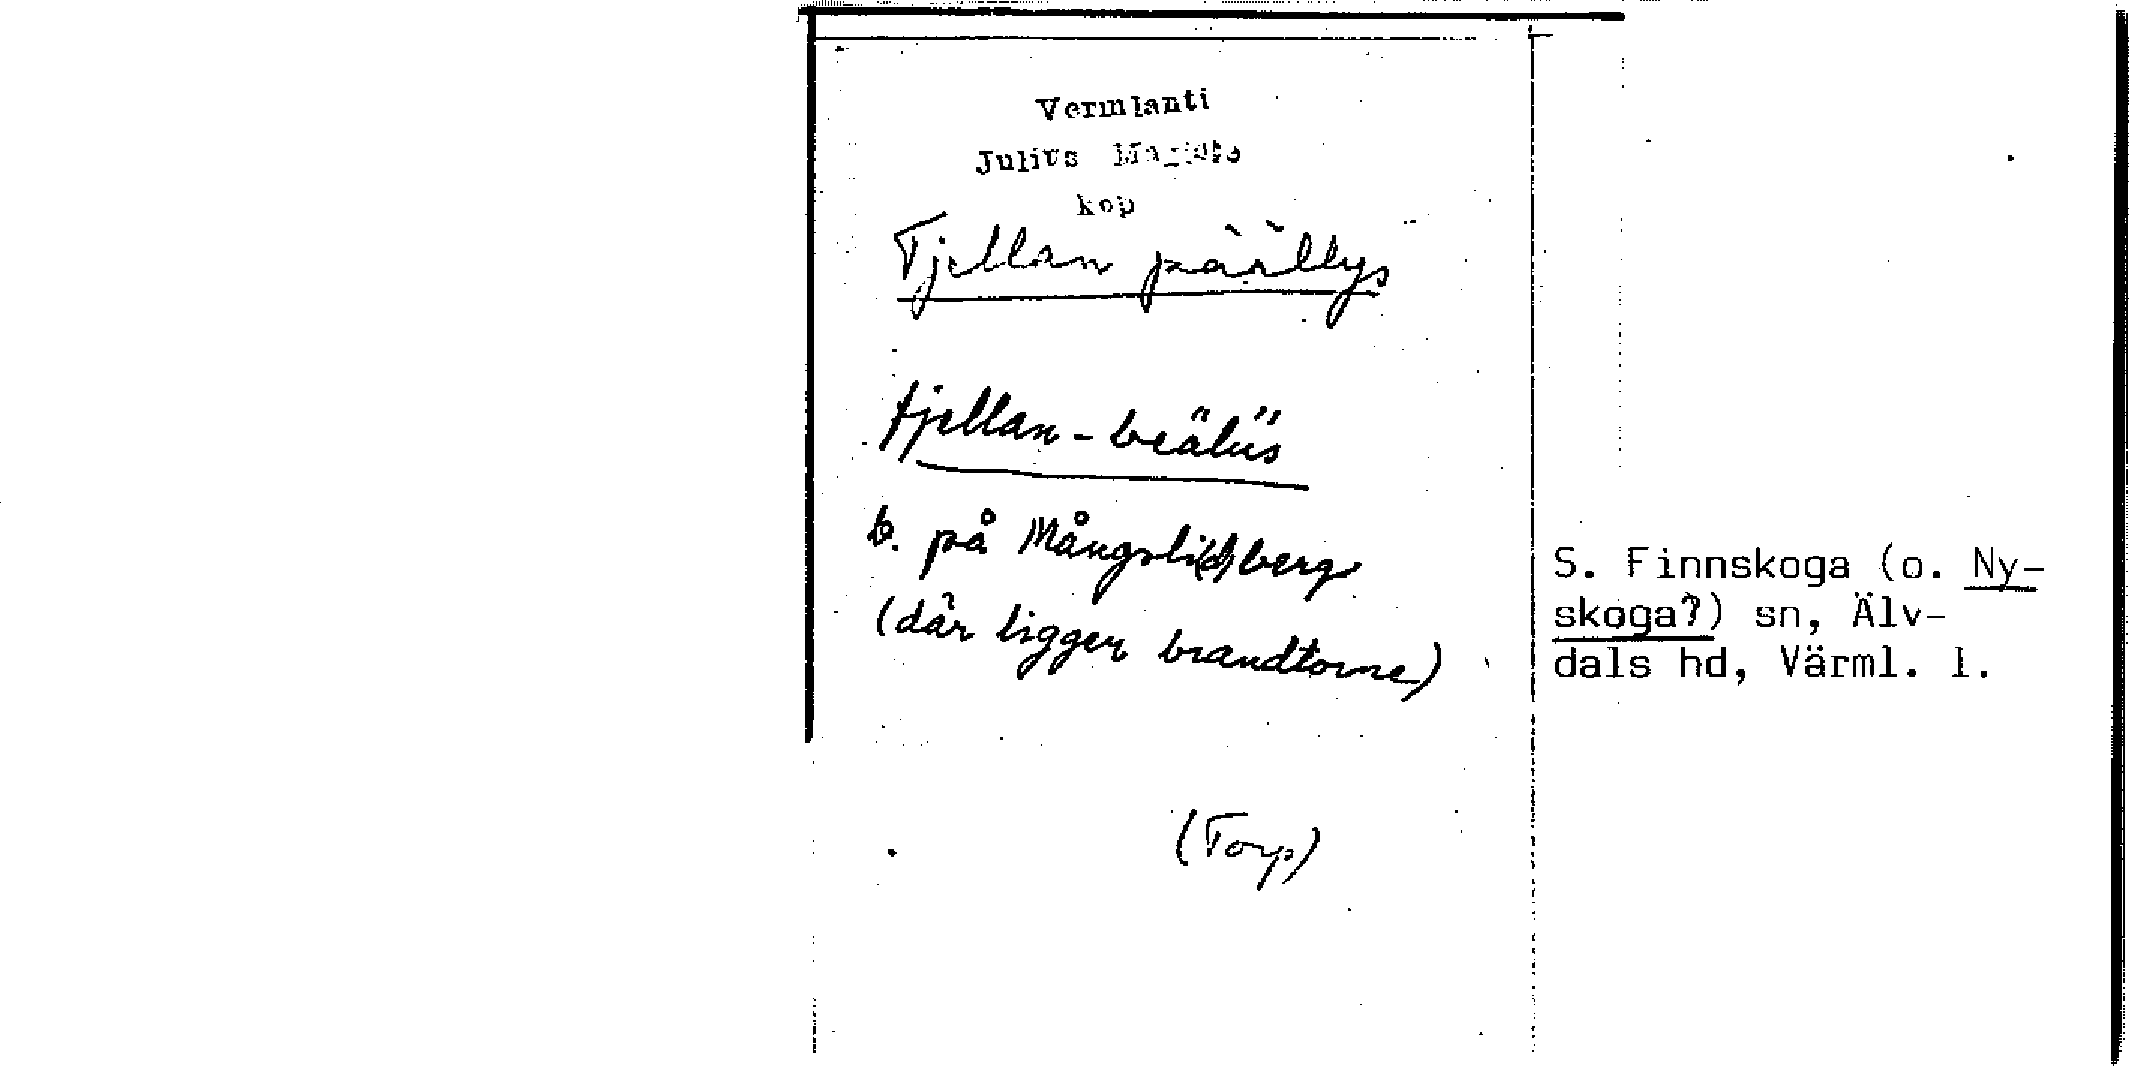 Vermlanti
Julius
kop
Fjellan päällys
fjellan-beälüs
b. på Mångsli(d)berg
(där ligger brandtorne)
(Torp)
S. Finnskoga (o. Ny-
skoga?) sn, Älv-
dals hd, Värml. l.